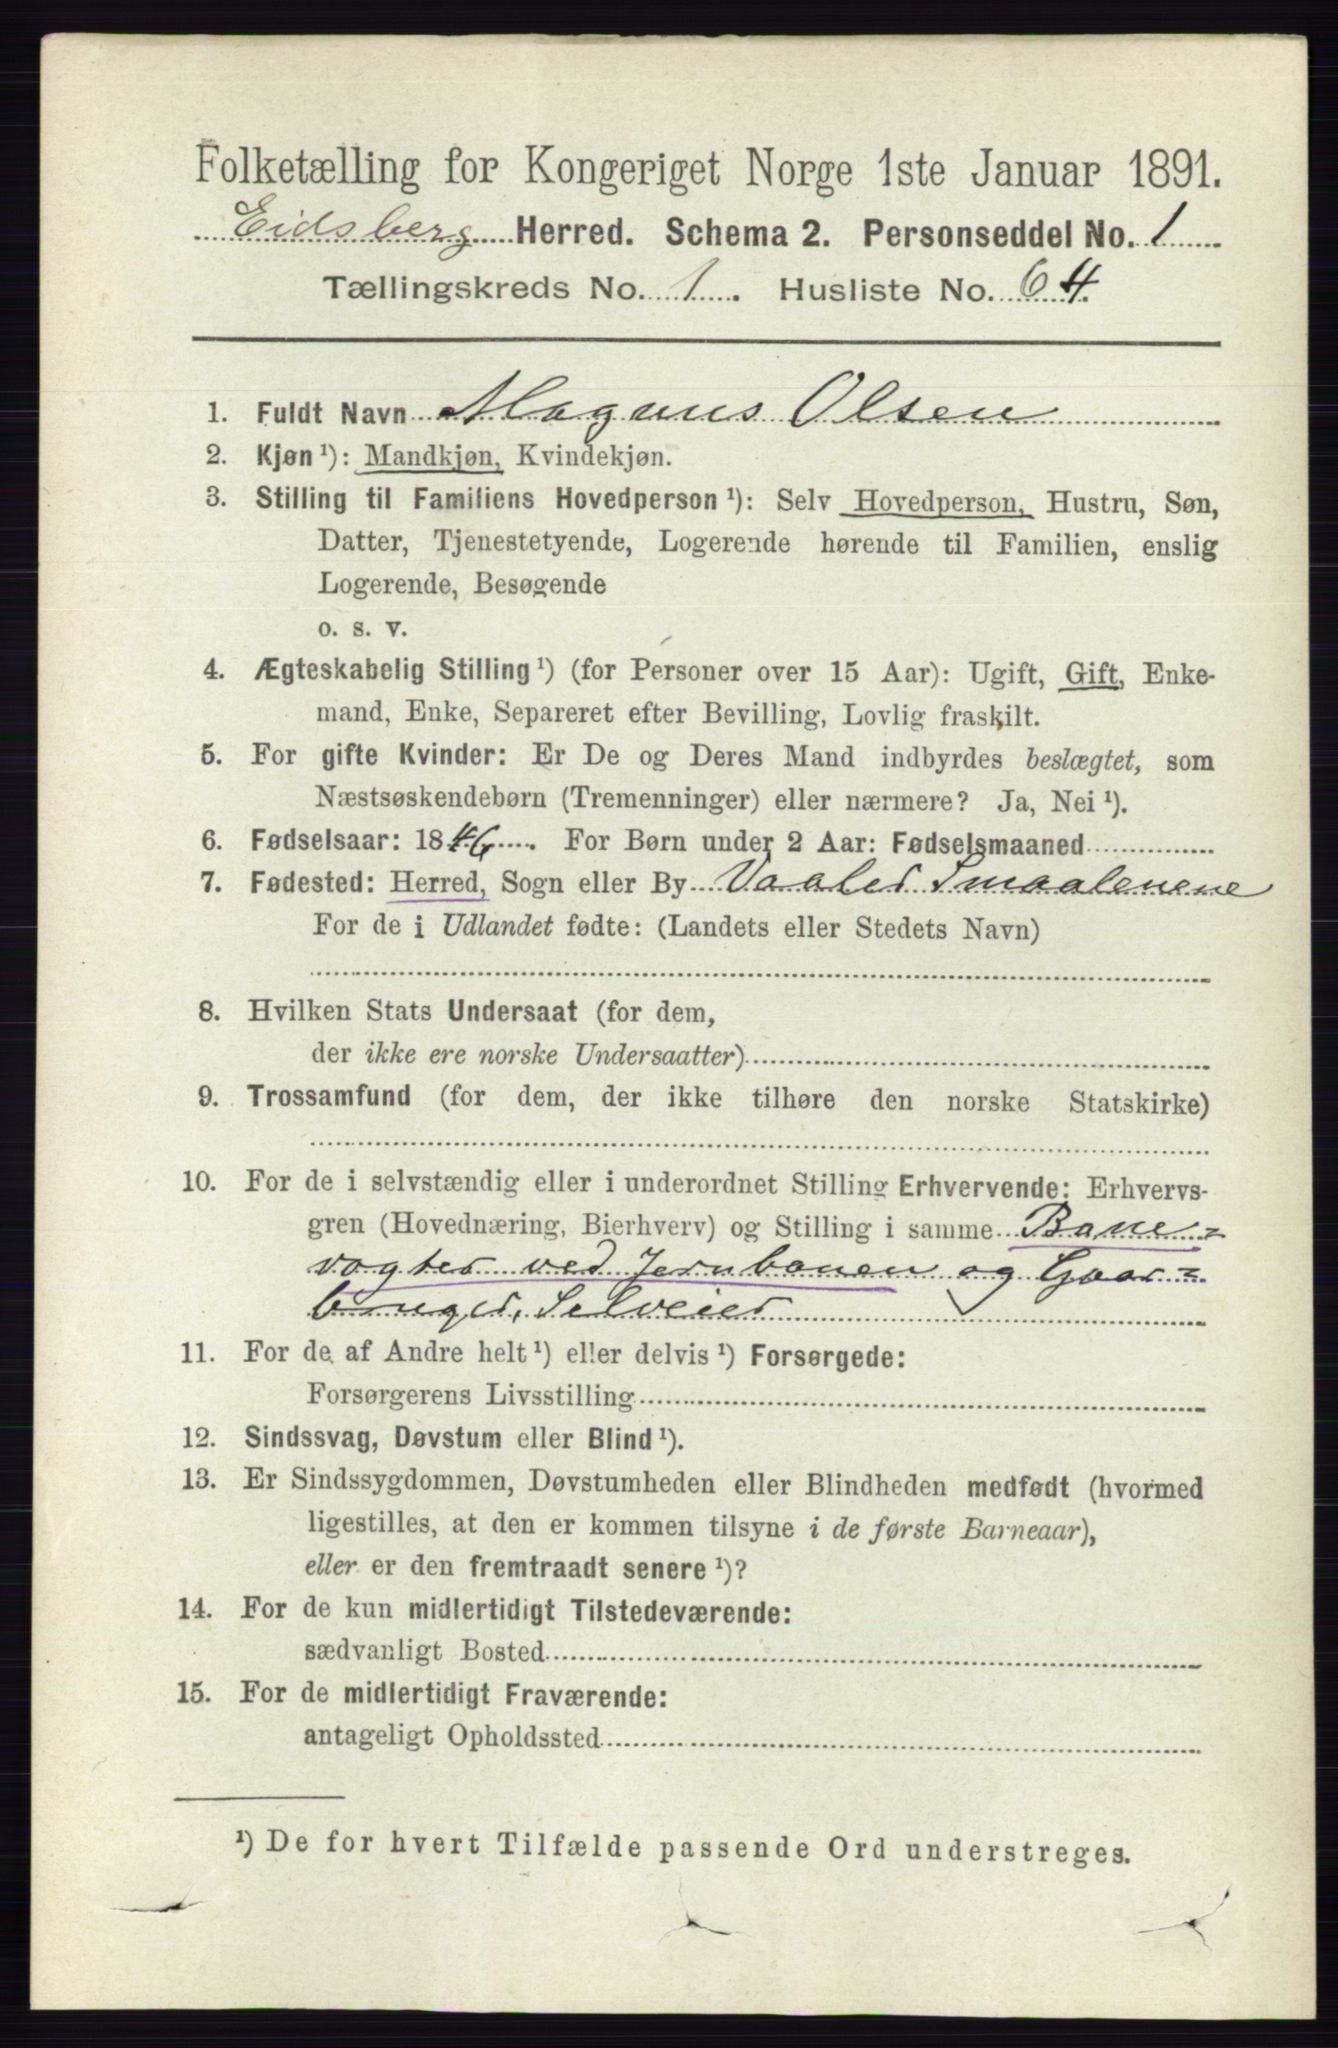 Folketælling for Kongeriget Norge 1ste Januar 1891.
Eidsberg Herred. Schema 2. Personseddel No. 1
Tællingskreds No. 1. Husliste No. 64.
1. Fuldt Navn Magnus Olsen
2. Kjøn ¹): Mandkjøn, Kvindekjøn.
3. Stilling til Familiens Hovedperson ¹): Selv Hovedperson, Hustru, Søn,
Datter, Tjenestetyende, Logerende hørende til Familien, enslig
Logerende, Besøgende
o. s. v.
4. Ægteskabelig Stilling ¹) (for Personer over 15 Aar): Ugift, Gift, Enke-
mand, Enke, Separeret efter Bevilling, Lovlig fraskilt.
5. For gifte Kvinder: Er De og Deres Mand indbyrdes beslægtet, som
Næstsøskendebørn (Tremenninger) eller nærmere? Ja, Nei ¹).
6. Fødselsaar: 1846. For Børn under 2 Aar: Fødselsmaaned
7. Fødested: Herred, Sogn eller By Vaaler Smaalenene
For de i Udlandet fødte: (Landets eller Stedets Navn)
8. Hvilken Stats Undersaat (for dem,
der ikke ere norske Undersaatter)
9. Trossamfund (for dem, der ikke tilhøre den norske Statskirke)
10. For de i selvstændig eller i underordnet Stilling Erhvervende: Erhvervs-
gren (Hovednæring, Bierhverv) og Stilling i samme Bane-
vogter ved Jernbanen og Gaar-
bruger, Selveier
11. For de af Andre helt ¹) eller delvis ¹) Forsørgede:
Forsørgerens Livsstilling
12. Sindssvag, Døvstum eller Blind ¹).
13. Er Sindssygdommen, Døvstumheden eller Blindheden medfødt (hvormed
ligestilles, at den er kommen tilsyne i de første Barneaar),
eller er den fremtraadt senere ¹)?
14. For de kun midlertidigt Tilstedeværende:
sædvanligt Bosted
15. For de midlertidigt Fraværende:
antageligt Opholdssted
¹) De for hvert Tilfælde passende Ord understreges.